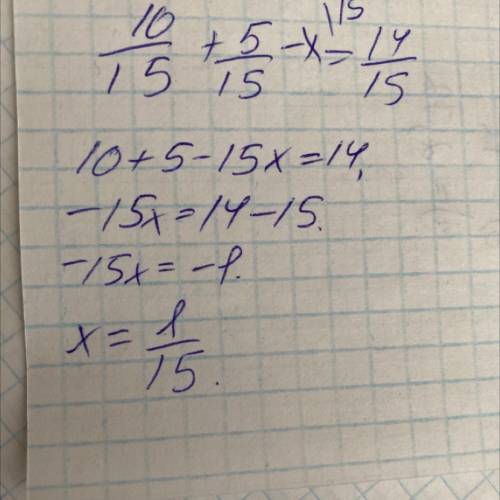 10/15 + 5/15 - x\15 = 14/15
10+5-15x=14,
-15x=14-15.
-15x=-1.
x=1/15.